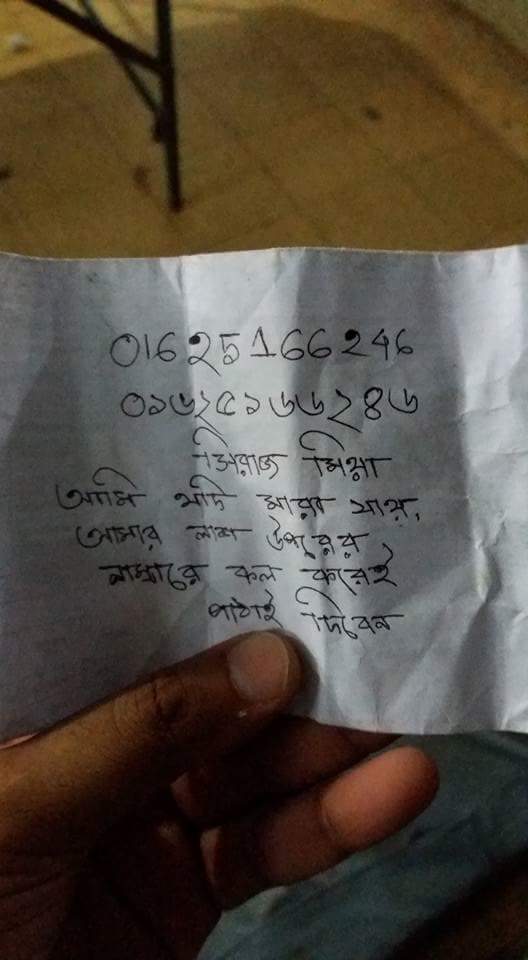 01625166246
০১৬২৫১৬৬২৪৬
সিরাজ মিয়া
আমি যদি মারা যায়,
আমার লাশ উপরের
নাম্বারে কল করেই
পাঠাই দিবেন